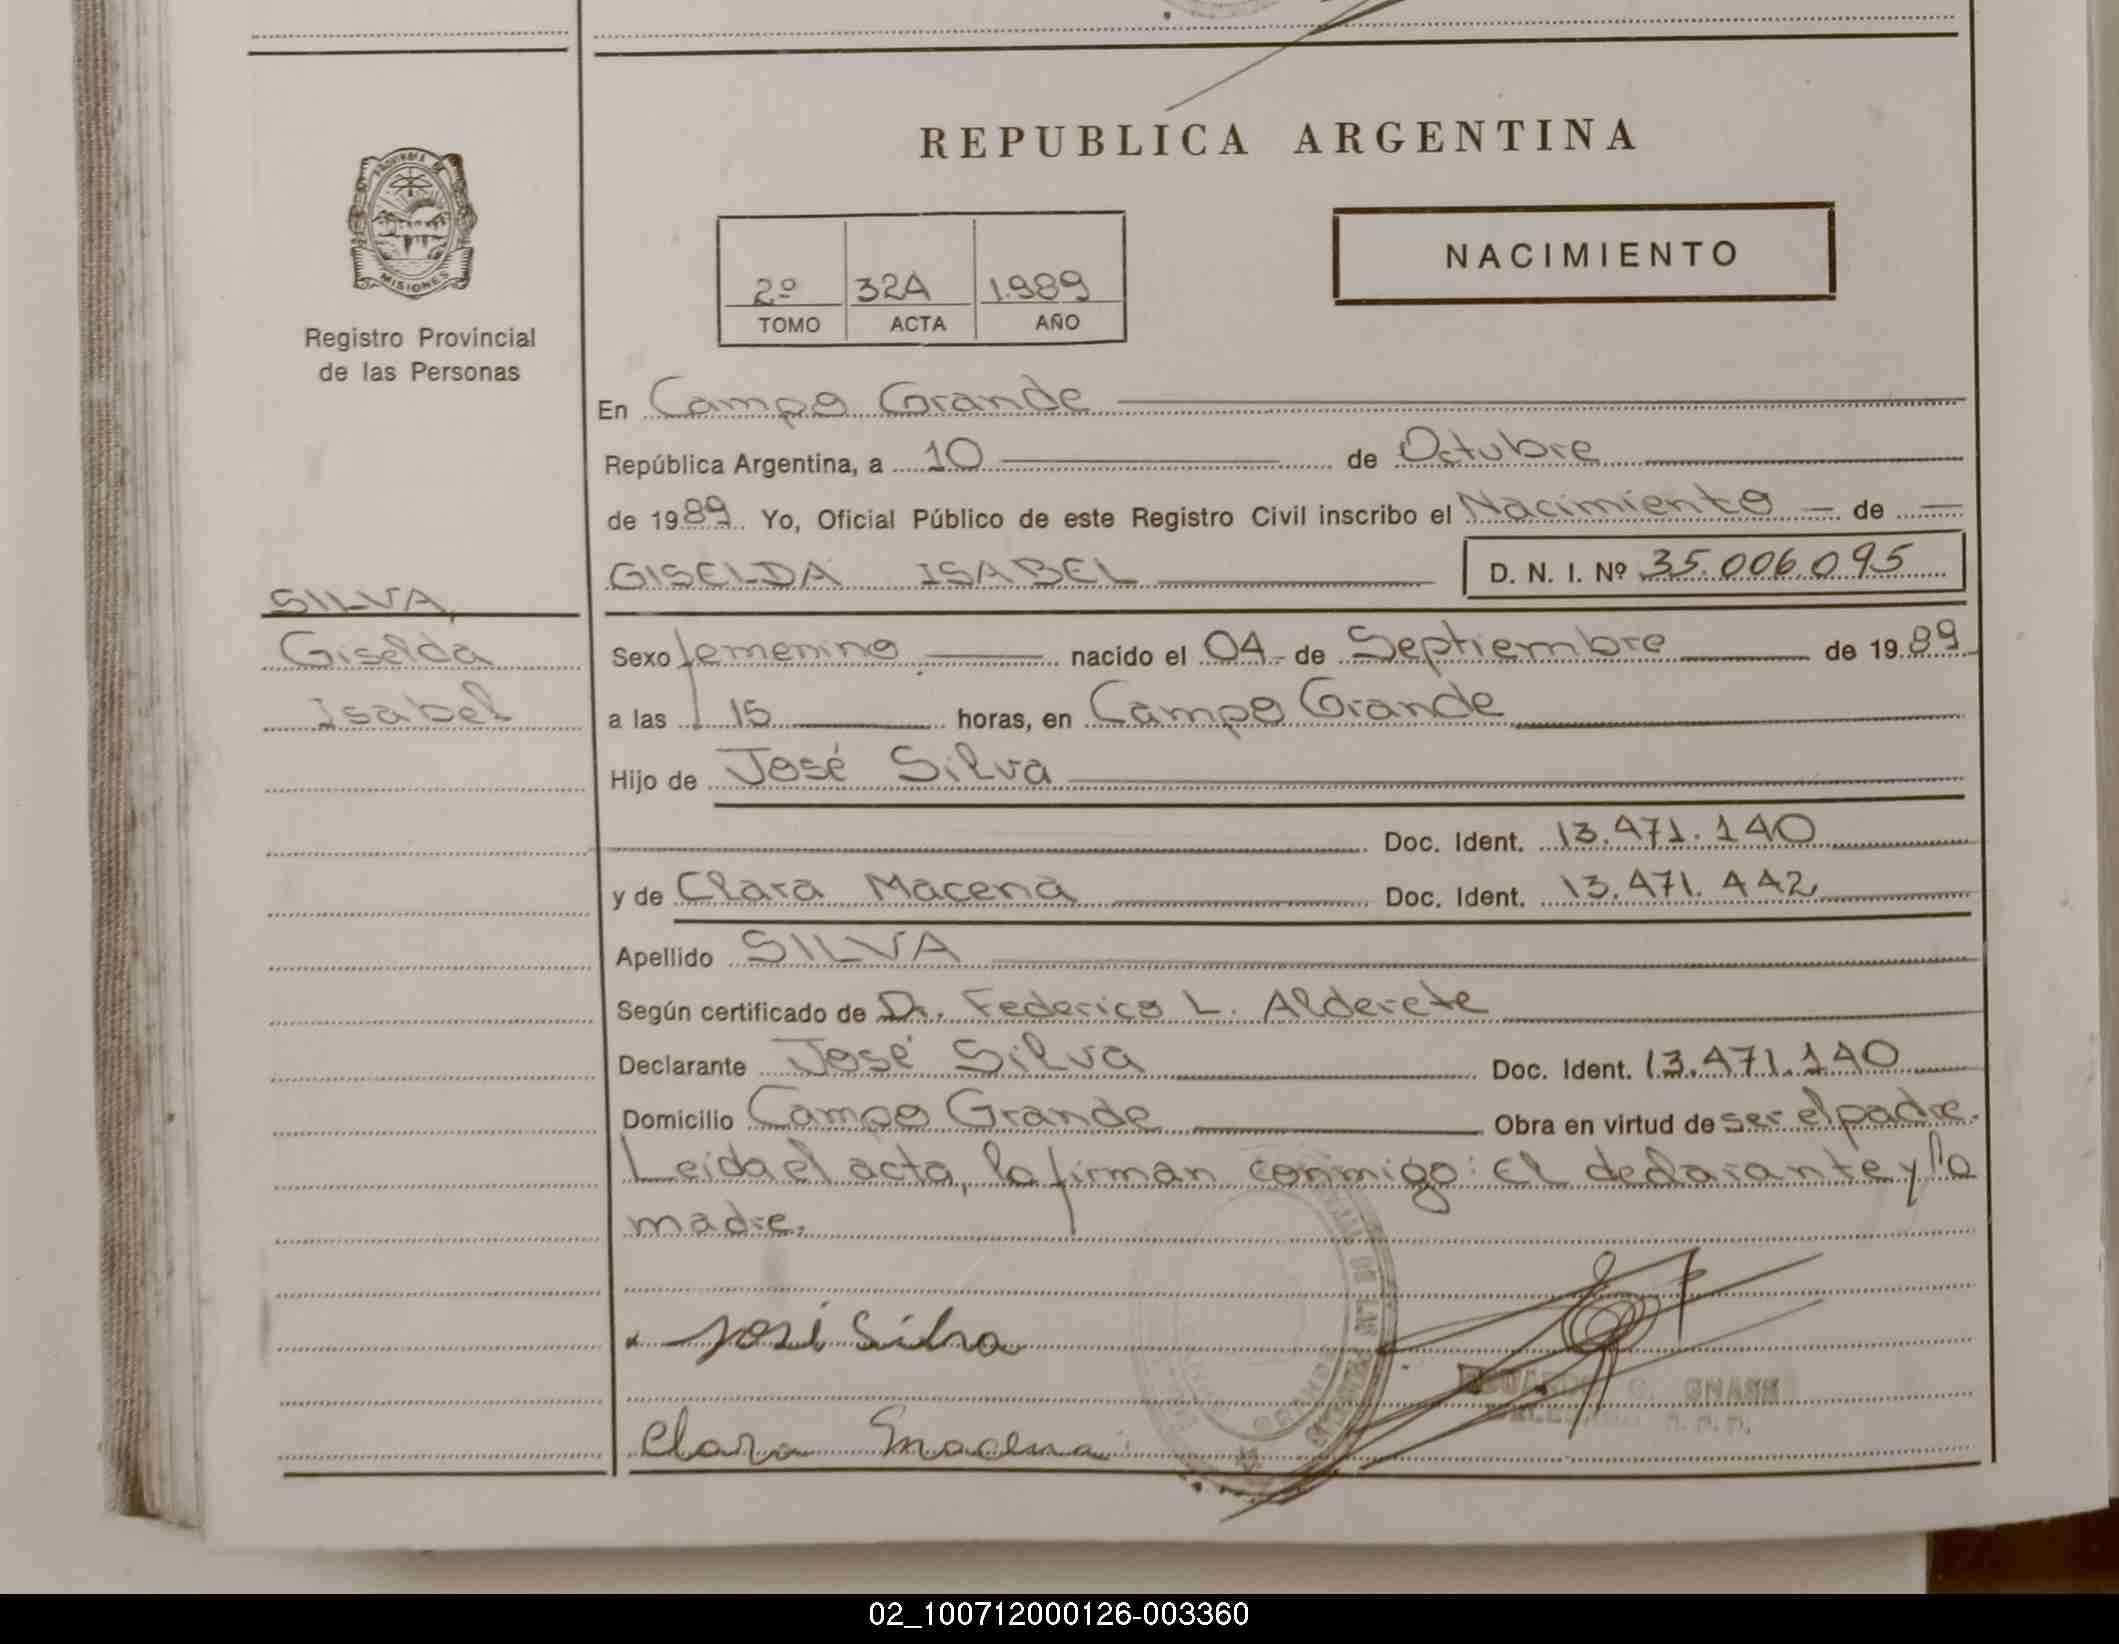 REPUBLICA ARGENTINA
PROVINCIA DE
MISIONES
Registro Provincial
de las Personas
NACIMIENTO
2º 324 1.989
TOMO ACTA AÑO
En Campo Grande
República Argentina, a 10 de Octubre
de 1989. Yo, Oficial Público de este Registro Civil inscribo el Nacimiento de
GISELDA ISABEL D. N. I. Nº 35.006.095
SILVA,
Giselda
Isabel
Sexo femenino nacido el 04 de Septiembre de 1989
a las 15 horas, en Campo Grande
Hijo de José Silva
Doc. Ident. 13.471.140
y de Clara Macena Doc. Ident. 13.471.442
Apellido SILVA
Según certificado de Dr. Federico L. Alderete
Declarante José Silva Doc. Ident. 13.471.140
Domicilio Campo Grande Obra en virtud de ser el padre.
Leida el acta, la firman conmigo: El declarante y la
madre.
José Silva
Clara Macena
DE LAS
02_100712000126-003360